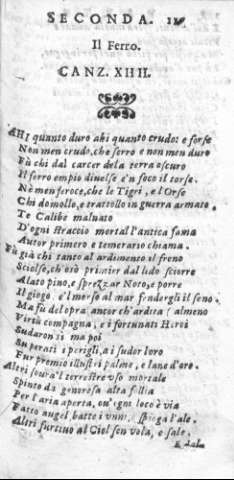 SECONDA.
Il Ferro.
CANZ. XIIII.
AHI quanto duro ahi quanto crudo: e forse
Non men crudo, che ferro e non men duro
Fù chi dal carcer dela terra oscuro
Il ferro empio divelse e'n foco il torse.
Nè men feroce, che le Tigri, e l'Orse
Chi domollo, e trattollo in guerra armato.
Te Calibe malnato
D'ogni straccio mortal l'antica fama
Autor primero e temerario chiama.
Fù già chi tanto al ardimento il freno
Sciolse, ch'osò primier dal lido sciorre
Alato pino, e sprezzar Noto, e porre
Il giogo e'l morso al mar fender gli il seno.
Ma fù del opra ancor ch'ardita almeno
Virtù compagna, e i fortunati Heroi
Sudaron ii ma poi
Superati i perigli, a i sudor loro
Fur premio illustri palme, e lane d'oro.
Altri soura'l terrestre uso mortale
Spinto da generosa alta follia
Per l'aria aperta, ou'ogni loco è via
Fatto augel, batte i vanni, spiega l'ale.
Altri furtiuo al Ciel sen vola, e sale.